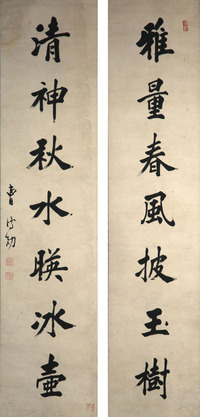 雅量春風披玉樹
清神秋水暎冰壺
曹鴻勛